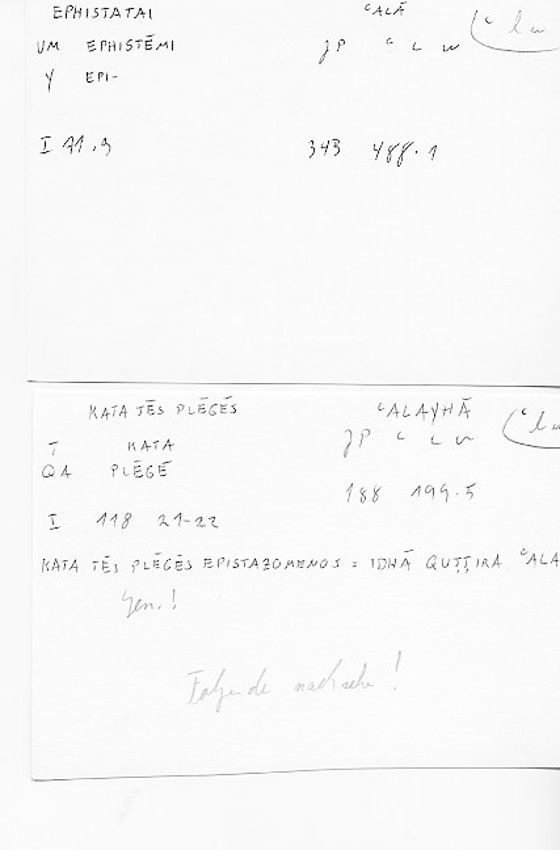 EPHISTATAI ᶜALĀ
UM EPHISTĒMI JP ᶜ L W (ᶜlw
Y EPI-
I 71.9 343 488.1
KATA TĒS PLĒGĒS ᶜALAYHĀ
T KATA JP ᶜ L W (ᶜlw
QA PLĒGĒ
188 199.5
I 118 21-22
KATA TĒS PLĒGĒS EPISTAZOMENOS = IDHĀ QUṬṬIRA ᶜALA
Gen.!
Folgende nachsehen!